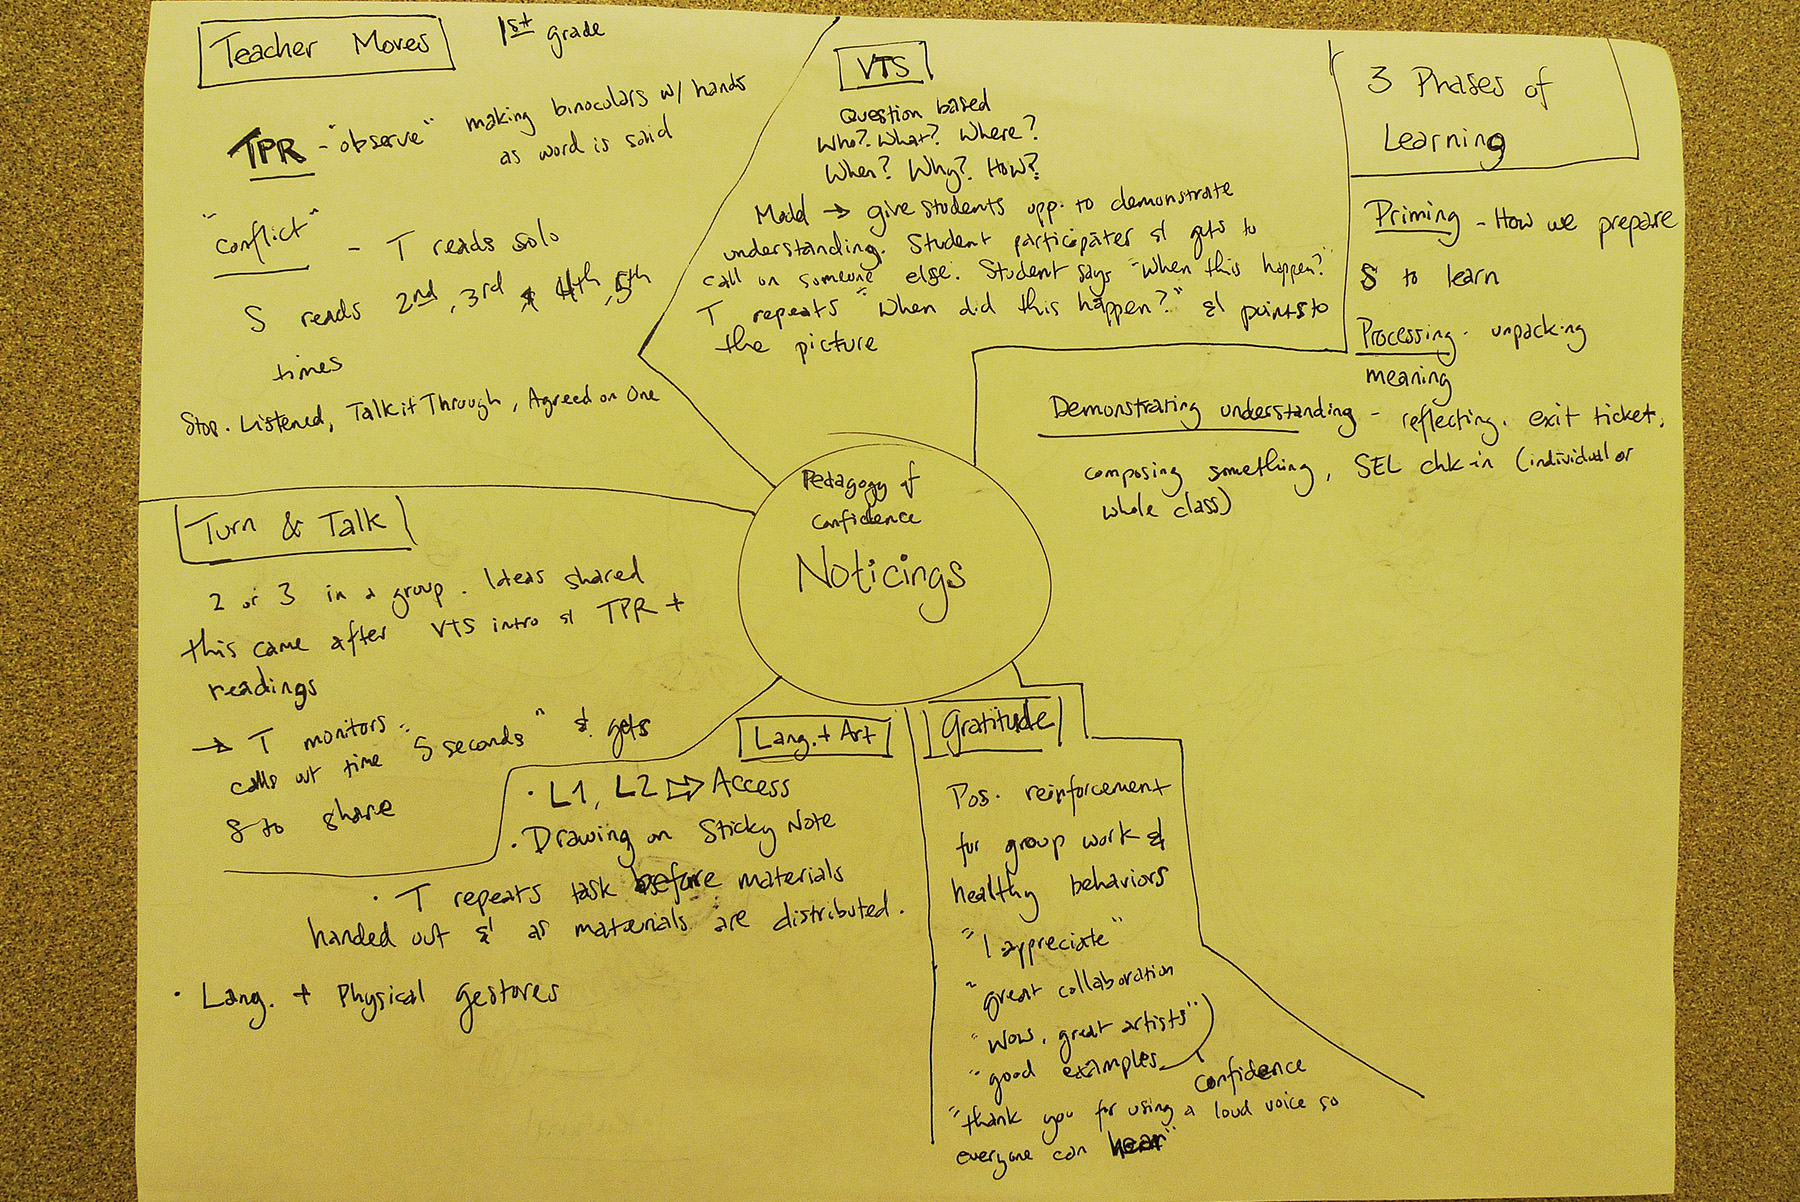 Teacher Moves
1st grade
TPR - "observe" making binoculars w/ hands
as word is said
"conflict" - T reads solo
S reads 2nd, 3rd 4th, 5th
times
Stop. Listened, Talk it Through, Agreed on One
VTS
Question based
Who? What? Where?
When? Why? How?
Model → give students opp. to demonstrate
understanding. Student participates & gets to
call on someone else. Student says "When this happen?"
T repeats "When did this happen?" & points to
the picture
3 Phases of
Learning
Priming - How we prepare
S to learn
Processing - unpacking
meaning
Demonstrating understanding - reflecting. exit ticket,
composing something, SEL chk-in (individual or
whole class)
Pedagogy of
Confidence
Noticings
Turn & Talk
2 or 3 in a group. Ideas shared
this came after VTS intro & TPR +
readings
→ T monitors
calls out time "5 seconds" & gets
S to share
Lang. + Art
· L1, L2 ⇨ Access
· Drawing on Sticky Note
· T repeats task before materials
handed out & as materials are distributed.
· Lang. + Physical gestures
Gratitude
Pos. reinforcement
for group work &
healthy behaviors
"I appreciate"
"great collaboration
"Wow, great artists"
"good examples
Confidence
"thank you for using a loud voice so
everyone can hear"